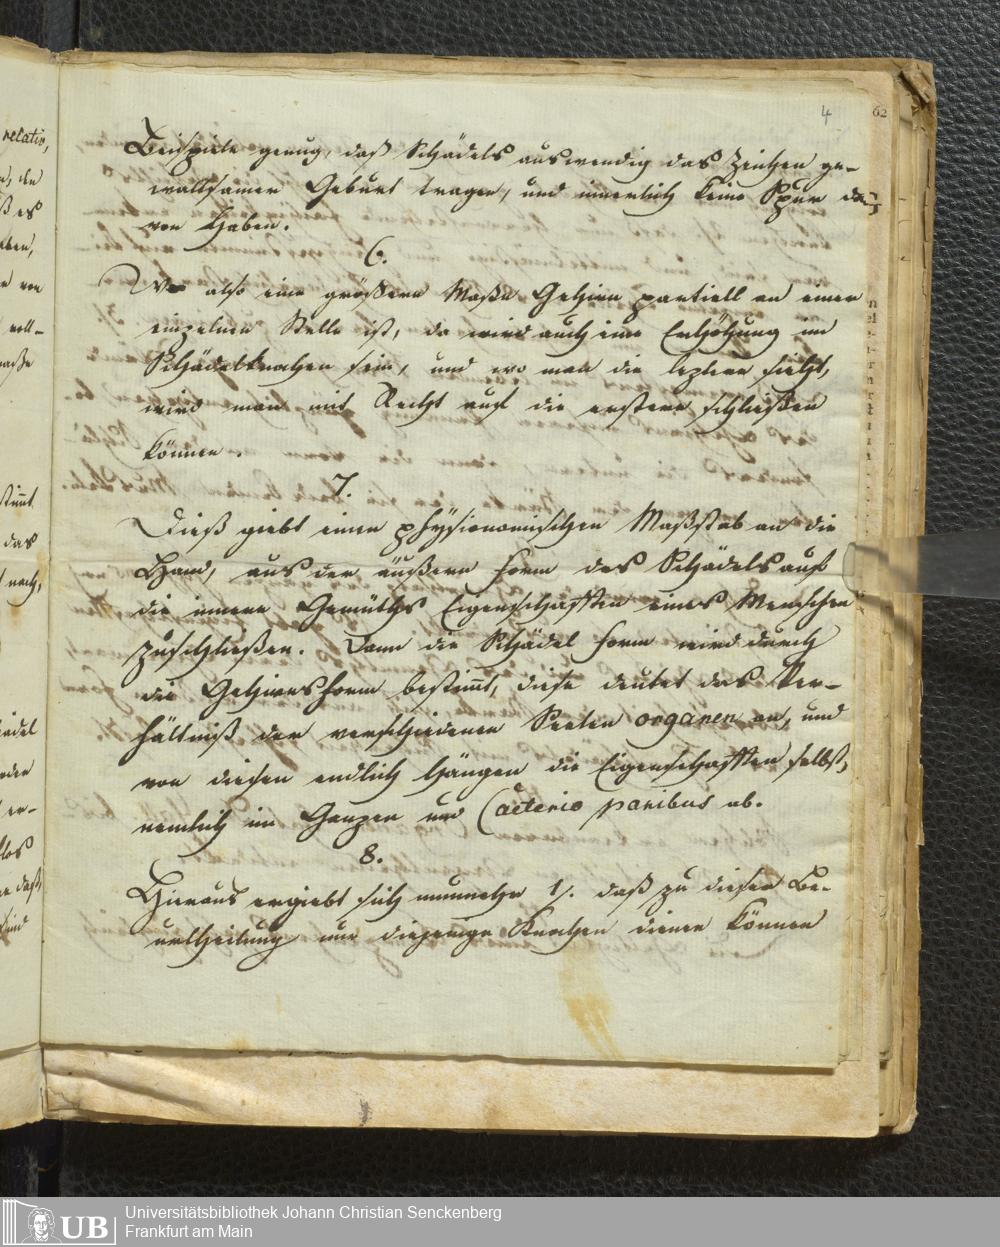 4
62
relativ,
Beispiele genug, daß Schädels auswendig das Zeichen ge-
waltsamer Geburt tragen, und innerlich keine Spur da-
von haben.
6.
Wo also eine größere Maße Gehirn partiell an einer
einzelnen Stelle ist, da wird auch eine Erhöhung im
Schädelknochen sein, und wo man die leztere sieht,
wird man mit Recht auf die erstere schließen
können.
7.
Dieß giebt einen physionomischen Maßstab an die
Hand, aus der äußern Form des Schädels auf
die innere Gemüths Eigenschafften eines Menschen
zuschließen. Denn die Schädel form wird durch
die Gehirnsform bestimt, diese deutet das Ver-
hältniß der verschiedenen Seelen organen an, und
von diesen endlich hängen die Eigenschafften selbst,
nemlich im Ganzen und Caeteris paribus ab.
8.
Hieraus ergiebt sich nunmehr 1). daß zu dieser Be-
urtheilung nur diejenige Knochen dienen können
UB
Universitätsbibliothek Johann Christian Senckenberg
Frankfurt am Main